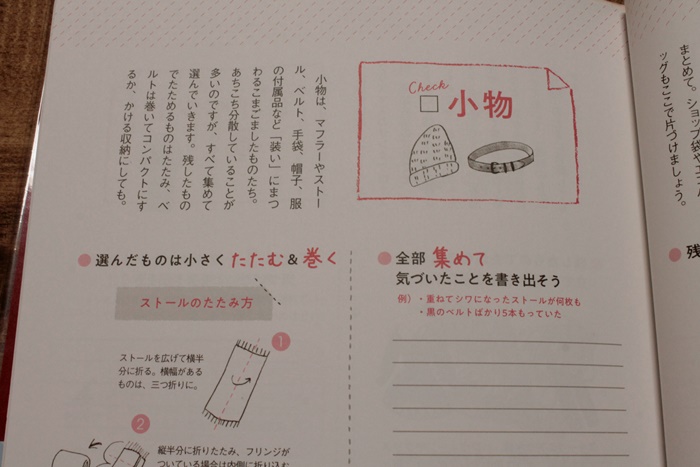 まとめて。
ッグもここで片づけましょう。
Check
小物
小物は、マフラーやストー
ル、ベルト、手袋、帽子、服
の付属品など「装い」にまつ
わるこまごましたものたち。
あちこち分散していることが
多いのですが、すべて集めて
選んでいきます。残したもの
でたためるものはたたみ、ベ
ルトは巻いてコンパクトにす
るか、かける収納にしても。
全部 集めて
気づいたことを書き出そう
例）・重ねてシワになったストールが何枚も
・黒のベルトばかり5本もっていた
選んだものは小さく たたむ & 巻く
ストールのたたみ方
1
ストールを広げて横半
分に折る。横幅がある
ものは、三つ折りに。
2
縦半分に折りたたみ、フリンジが
ついている場合は内側に折り込む
残